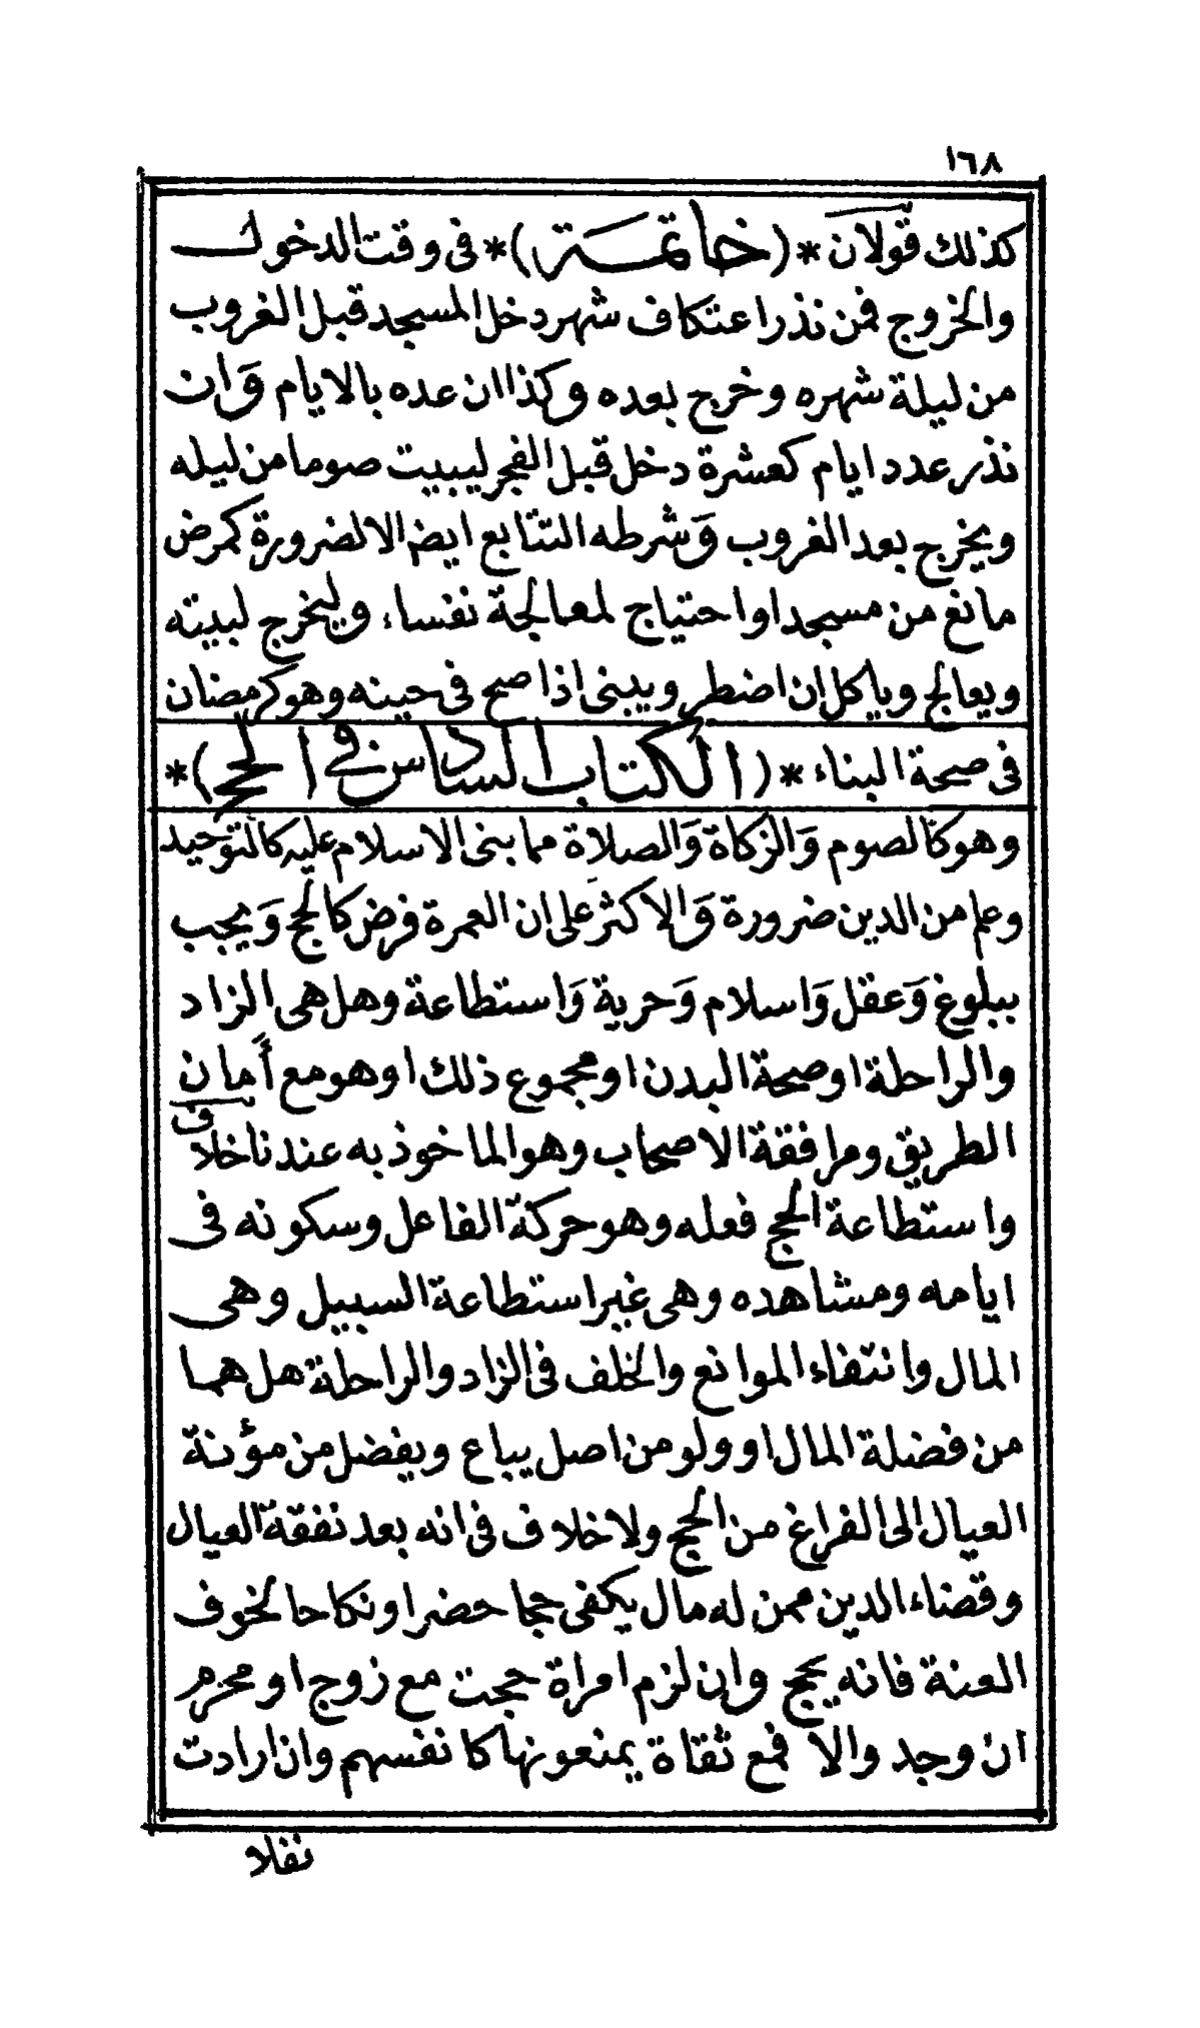 ١٦٨
كذلك قولان *(خاتمة)* فى وقت الدخول
والخروج فمن نذر اعتكاف شهر دخل المسجد قبل الغروب
من ليلة شهره وخرج بعده وكذا ان عده بالايام وَان
نذر عدد ايام كعشرة دخل قبل الفجر ليبيت صوما من ليله
ويخرج بعد الغروب وَشرطه التتابع ايضا الا لضرورة كمرض
مانع من مسجد او احتياج لمعالجة نفساء وليخرج لبيته
ويعالج وياكل ان اضطر ويبنى اذا صح فى حينه وهو كرمضان
فى صحة البناء *(الكتاب السادس فى الحج)*
وهو كالصوم وَالزكاة وَالصلاة مما بنى الاسلام عليه كالتوحيد
وعلم من الدين ضرورة وَالاكثر على ان العمرة فرض كالحج وَيجب
ببلوغ وَعقل وَاسلام وَحرية وَاستطاعة وهل هى الزاد
والراحلة او صحة البدن او مجموع ذلك او هو مع أمان
الطريق ومرافقة الاصحاب وهو الماخوذ به عندنا خلاف
واستطاعة الحج فعله وهو حركة الفاعل وسكونه فى
ايامه ومشاهده وهى غير استطاعة السبيل وهى
المال وانتفاء الموانع والخلف فى الزاد والراحلة هل هما
من فضلة المال او ولو من اصل يباع ويفضل من مؤنة
العيال الى الفراغ من الحج ولا خلاف فى انه بعد نفقة العيال
وقضاء الدين ممن له مال يكفى حجا حضرا ونكاحا لخوف
العنة فانه يحج وان لزم امراة حجت مع زوج او محرم
ان وجد والا فمع ثقاة يمنعونها كانفسهم وان ارادت
نفلا